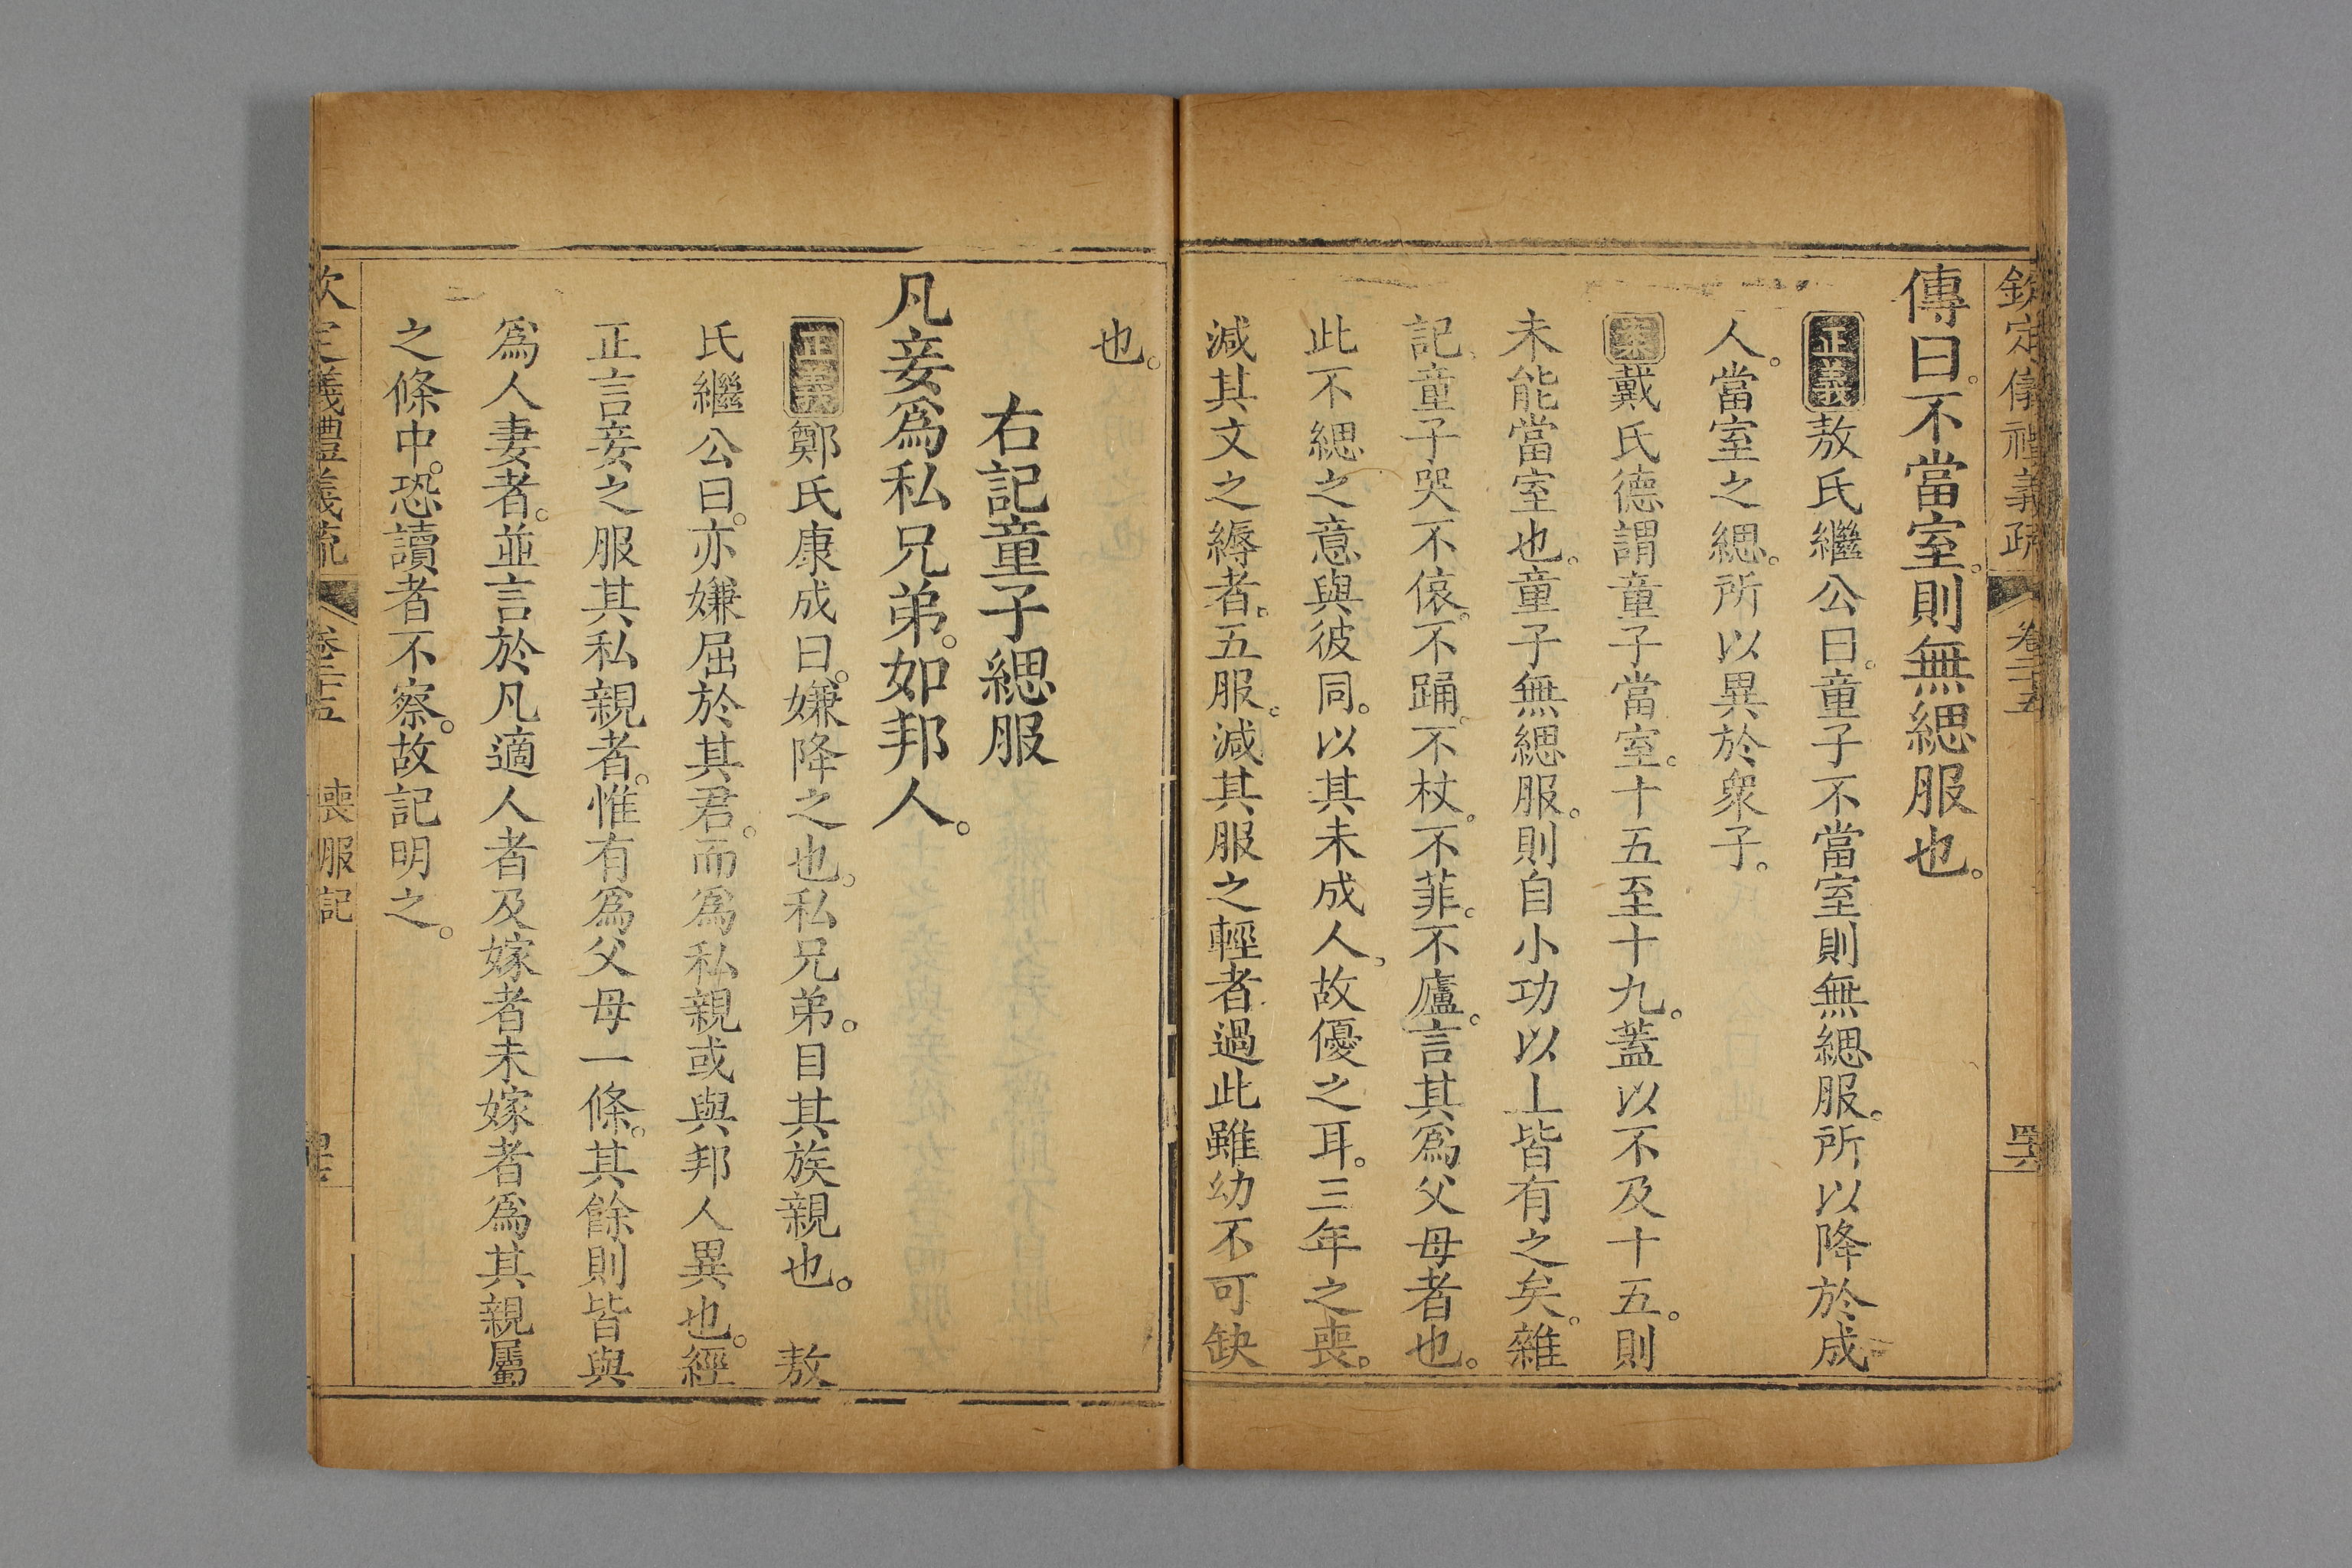 欽定儀禮義疏 卷二十五
傳曰。不當室。則無緦服也。
正義敖氏繼公曰。童子不當室則無緦服。所以降於成
人。當室之緦。所以異於衆子。
案戴氏德謂童子當室。十五至十九。蓋以不及十五。則
未能當室也。童子無緦服。則自小功以上皆有之矣。雜
記。童子哭不偯。不踊。不杖。不菲。不廬。言其爲父母者也。
此不緦之意與彼同。以其未成人。故優之耳。三年之喪。
減其文之縟者。五服。減其服之輕者。過此雖幼不可缺
也。
右記童子緦服
凡妾爲私兄弟。如邦人。
正義鄭氏康成曰。嫌降之也。私兄弟。目其族親也。 敖
氏繼公曰。亦嫌屈於其君。而爲私親或與邦人異也。經
正言妾之服其私親者。惟有爲父母一條。其餘則皆與
爲人妻者。並言於凡適人者及嫁者未嫁者爲其親屬
之條中。恐讀者不察。故記明之。
欽定儀禮義疏 卷二十五 喪服記